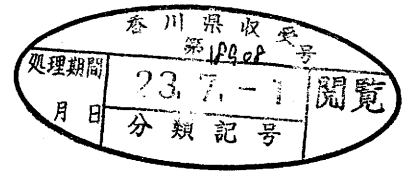 香川県収受
第18908号
処理期間
月 日
23. 7. -1
分類記号
閲覧